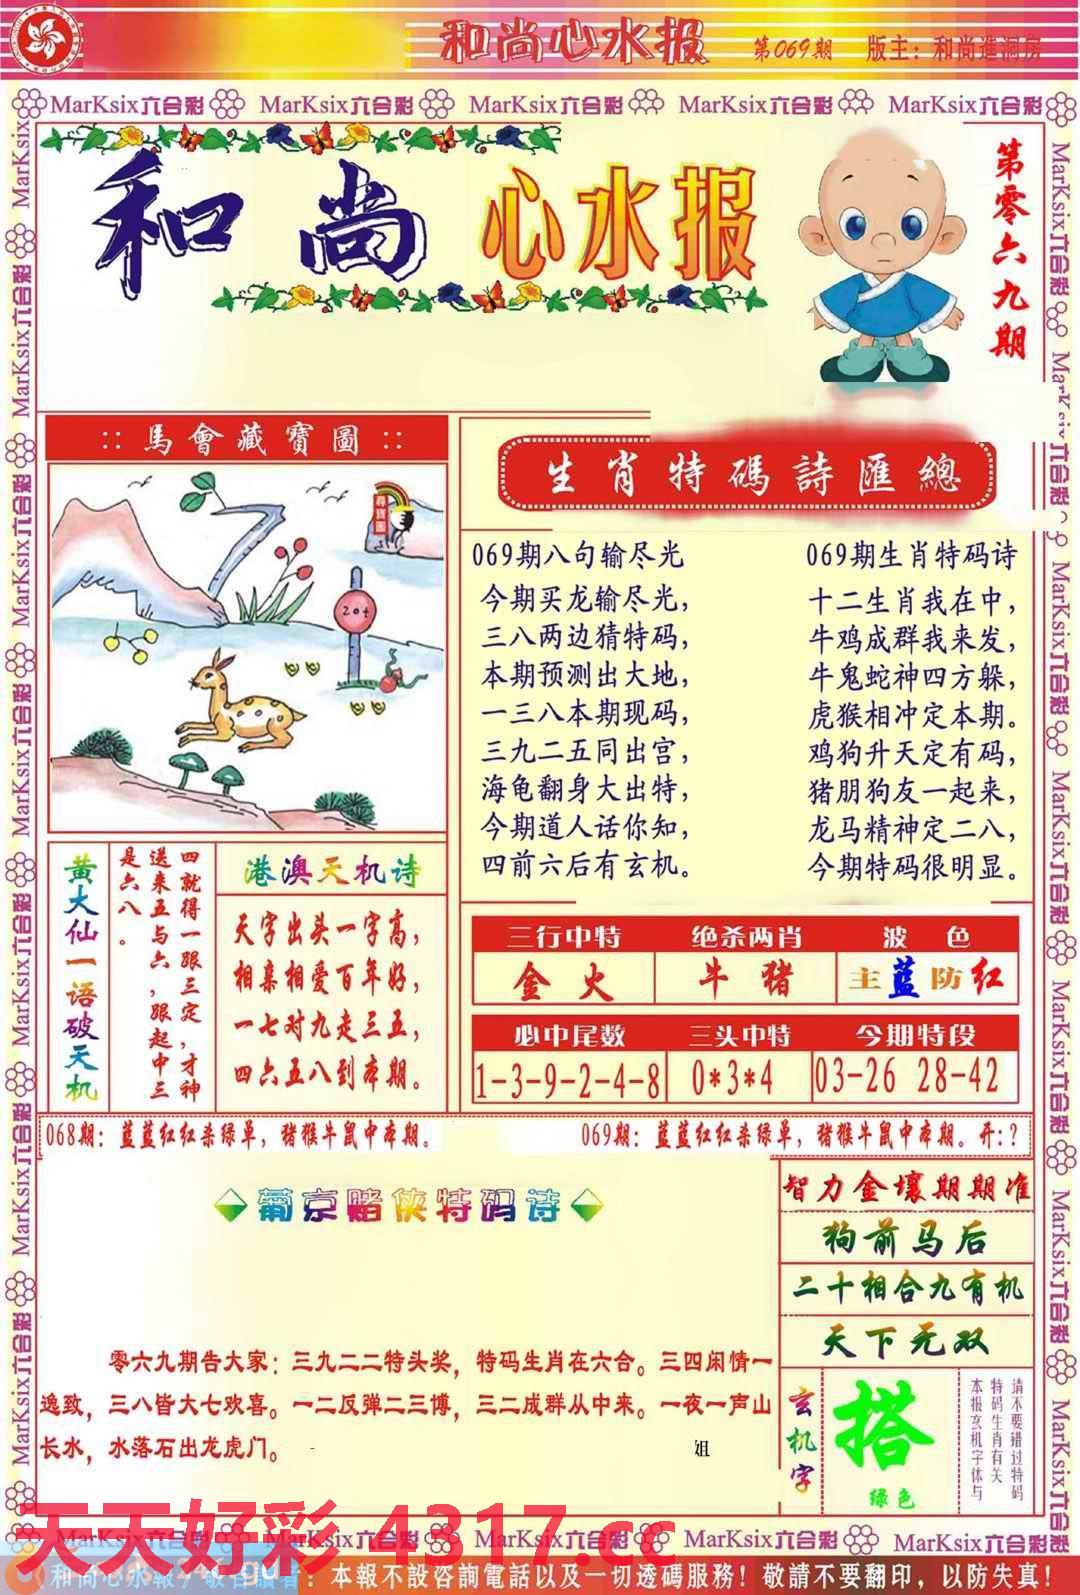 和尚心水报 第069期 版主：和尚進洞房
MarKsix六合彩 MarKsix六合彩 MarKsix六合彩 MarKsix六合彩 MarKsix六合彩
和尚心水报
第零六九期
:: 馬會藏寶圖 ::
尋寶圖
20t
生肖特碼詩匯總
069期八句输尽光
今期买龙输尽光，
三八两边猜特码，
本期预测出大地，
一三八本期现码，
三九二五同出宫，
海龟翻身大出特，
今期道人话你知，
四前六后有玄机。
069期生肖特码诗
十二生肖我在中，
牛鸡成群我来发，
牛鬼蛇神四方躲，
虎猴相冲定本期。
鸡狗升天定有码，
猪朋狗友一起来，
龙马精神定二八，
今期特码很明显。
黄大仙一语破天机
四就得一跟三定，才神
送来五与六，跟起中三
是六八。
港澳天机诗
天字出头一字高，
相亲相爱百年好，
一七对九走三五，
四六五八到本期。
三行中特 绝杀两肖 波色
金火 牛猪 主蓝防红
必中尾数 三头中特 今期特段
1-3-9-2-4-8 0*3*4 03-26 28-42
068期：蓝蓝红红杀绿单，猪猴牛鼠中本期。
069期：蓝蓝红红杀绿单，猪猴牛鼠中本期。开:？
葡京赌侠特码诗
零六九期告大家：三九二二特头奖，特码生肖在六合。三四闲情一
逸致，三八皆大七欢喜。一二反弹二三博，三二成群从中来。一夜一声山
长水，水落石出龙虎门。
姐
智力金壤期期准
狗前马后
二十相合九有机
天下无双
玄机字
搭
绿色
请不要错过特码
特码生肖有关
本报玄机字体与
天天好彩 4317.cc
MarKsix六合彩 MarKsix六合彩 MarKsix六合彩 MarKsix六合彩 MarKsix六合彩
：本報不設咨詢電話以及一切透碼服務！敬請不要翻印，以防失真！